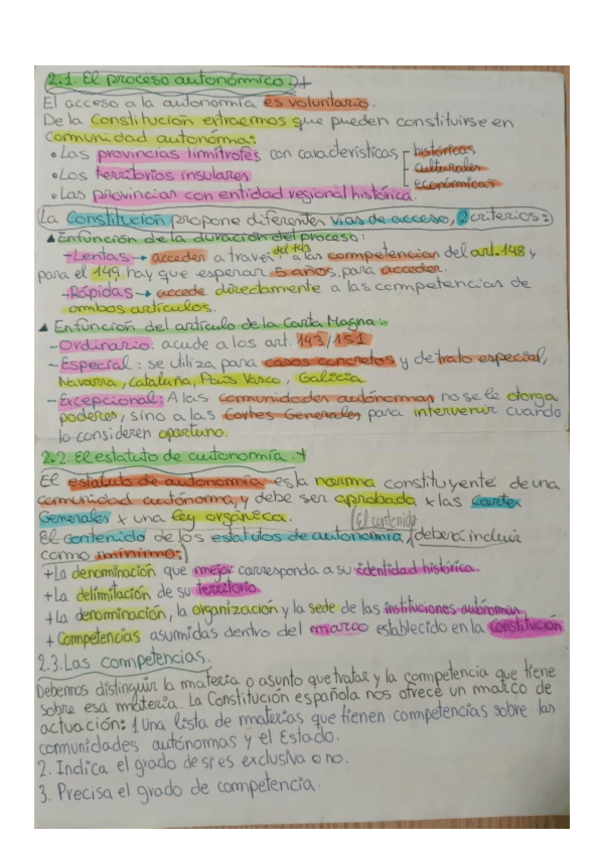 2.1. El proceso autonómico.+
El acceso a la autonomía es voluntario.
De la Constitución extraemos que pueden constituirse en
comunidad autónoma:
• Las provincias limítrofes con características históricas
culturales
económicas
• Los territorios insulares
• Las provincias con entidad regional histórica.
La Constitución propone diferentes vías de acceso, 2 criterios:
▲ En función de la duración del proceso:
-Lentas → acceden a través del 143 a las competencias del art. 148 y
para el 149, hay que esperar 5 años, para acceder.
-Rápidas → accede directamente a las competencias de
ambos artículos.
▲ En función del artículo de la Carta Magna:
-Ordinario: acude a los art. 143/151
-Especial: se utiliza para casos concretos y de trato especial,
Navarra, Cataluña, País Vasco, Galicia
-Excepcional: A las comunidades autónomas no se le otorga
poderes, sino a las Cortes Generales para intervenir cuando
lo consideren oportuno.
2.2. El estatuto de autonomía.+
El estatuto de autonomía es la norma constituyente de una
comunidad autónoma, y debe ser aprobada x las Cortes
Generales x una ley orgánica.
(El contenido
El contenido de los estatutos de autonomía, deberá incluir
como mínimo:)
+La denominación que mejor corresponda a su identidad histórica.
+La delimitación de su territorio
+La denominación, la organización y la sede de las instituciones autónomas
+ Competencias asumidas dentro del marco establecido en la Constitución
2.3. Las competencias.
Debemos distinguir la materia o asunto que tratar y la competencia que tiene
sobre esa materia. La Constitución española nos ofrece un marco de
actuación: 1 Una lista de materias que tienen competencias sobre las
comunidades autónomas y el Estado.
2. Indica el grado de si es exclusiva o no.
3. Precisa el grado de competencia.